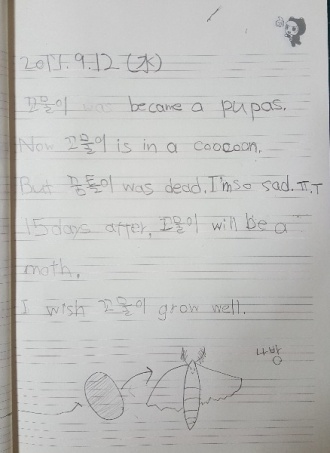 9.12 (水)
꼬물이 became a pupas.
Now 꼬물이 is in a coocoon.
But 꿈틀이 was dead. I'm so sad. ㅠ.ㅜ
15days after, 꼬물이 will be a
moth.
I wish 꼬물이 grow well.
나방